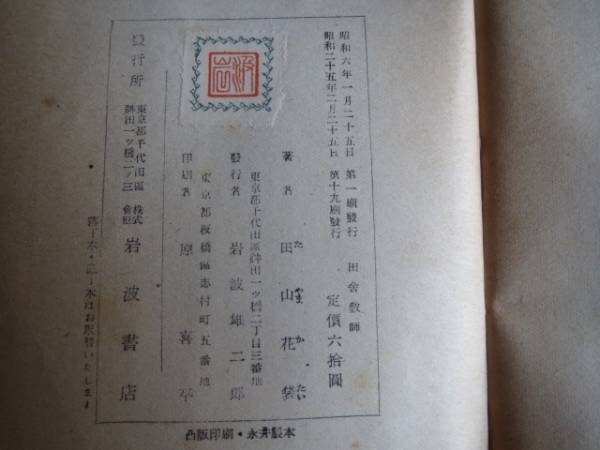 昭和六年一月二十五日 第一刷發行
昭和二十五年二月二十五日 第十九刷發行
田舍教師
定價六拾圓
著者 田山花袋
た やま か たい
東京都千代田區神田一ツ橋二丁目三番地
發行者 岩波雄二郎
東京都板橋區志村町五番地
印刷者 原喜平
發行所 東京都千代田區神田一ツ橋二ノ三 株式會社 岩波書店
落丁本・乱丁本はお取替いたします
凸版印刷・永井製本